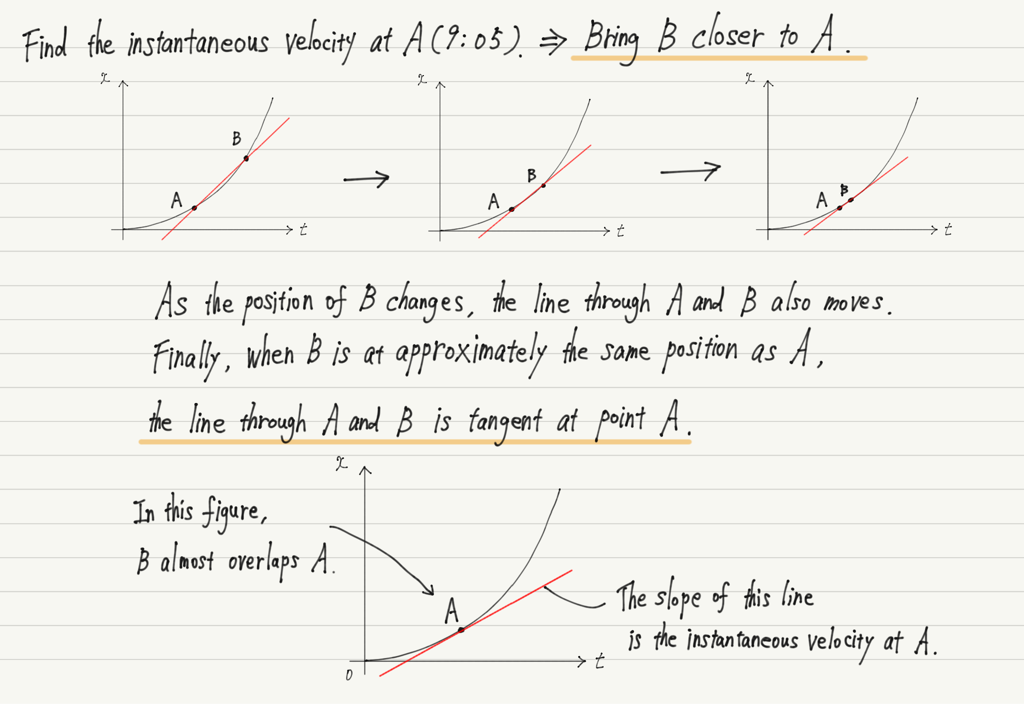 Find the instantaneous velocity at A (9:05). ⇒ Bring B closer to A.
x
B
A
t
x
B
A
t
x
B
A
t
As the position of B changes, the line through A and B also moves.
Finally, when B is at approximately the same position as A,
the line through A and B is tangent at point A.
x
In this figure,
B almost overlaps A.
A
The slope of this line
is the instantaneous velocity at A.
0
t